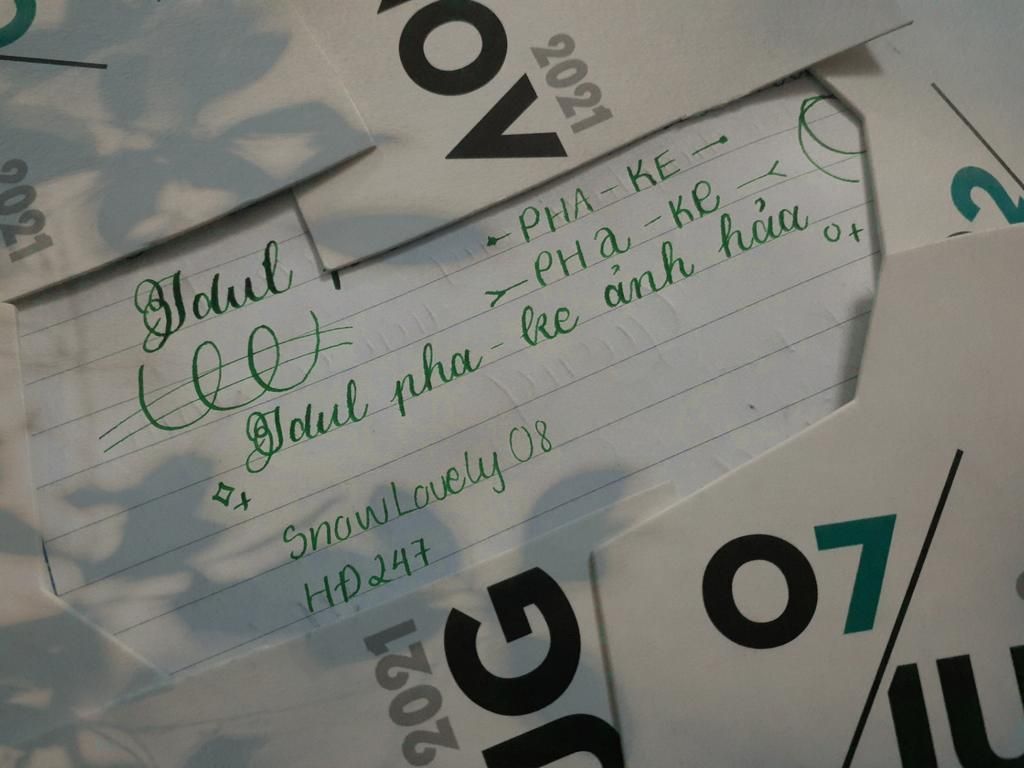 NOV
2021
2021
PHA-KE
PHa-Ke
Idul
Idul pha-ke ảnh hảa
SnowLovely 08
HĐ247
2021
UG
07
2